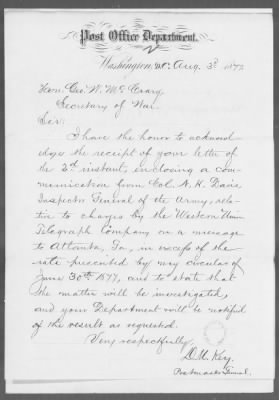 Post Office Department.
Washington D.C. Aug. 3d 1877
Hon. Geo. W. McCrary
Secretary of War.
Sir:
I have the honor to acknowl
edge the receipt of your letter of
the 2d instant, enclosing a com-
munication from Col. N. H. Davis,
Inspector General of the Army, rela-
tive to charges by the Western Union
Telegraph Company on a message
to Atlanta, Ga., in excess of the
rate prescribed by my circular of
June 30th 1877, and to state that
the matter will be investigated,
and your Department will be notified
of the result as requested.
Very respectfully,
D. M. Key.
Postmaster General.